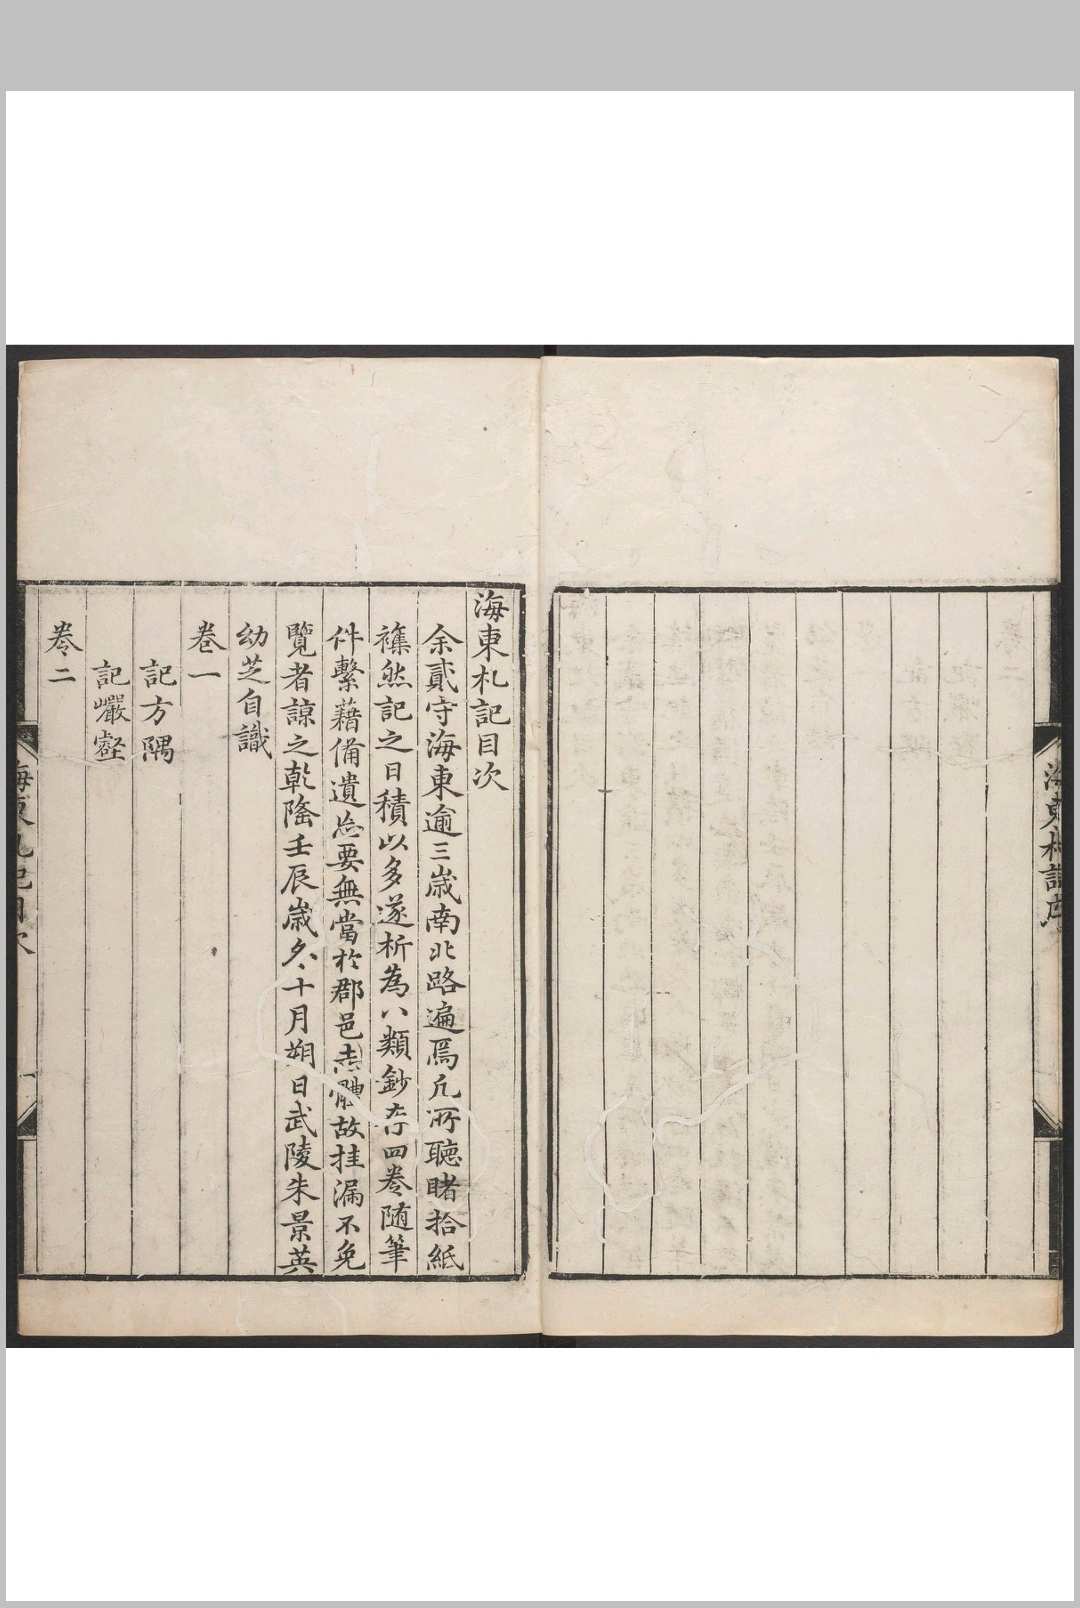 海東札記序
海東札記目次
余貳守海東逾三歲南北路遍焉凡所聽睹拾紙
襍然記之日積以多遂析為八類鈔存四卷随筆
件繫藉備遺忘要無當於郡邑志體故挂漏不免
覽者諒之乾隆壬辰歲冬十月朔日武陵朱景英
幼芝自識
卷一
記方隅
記巖壑
卷二
海東札記目次
一